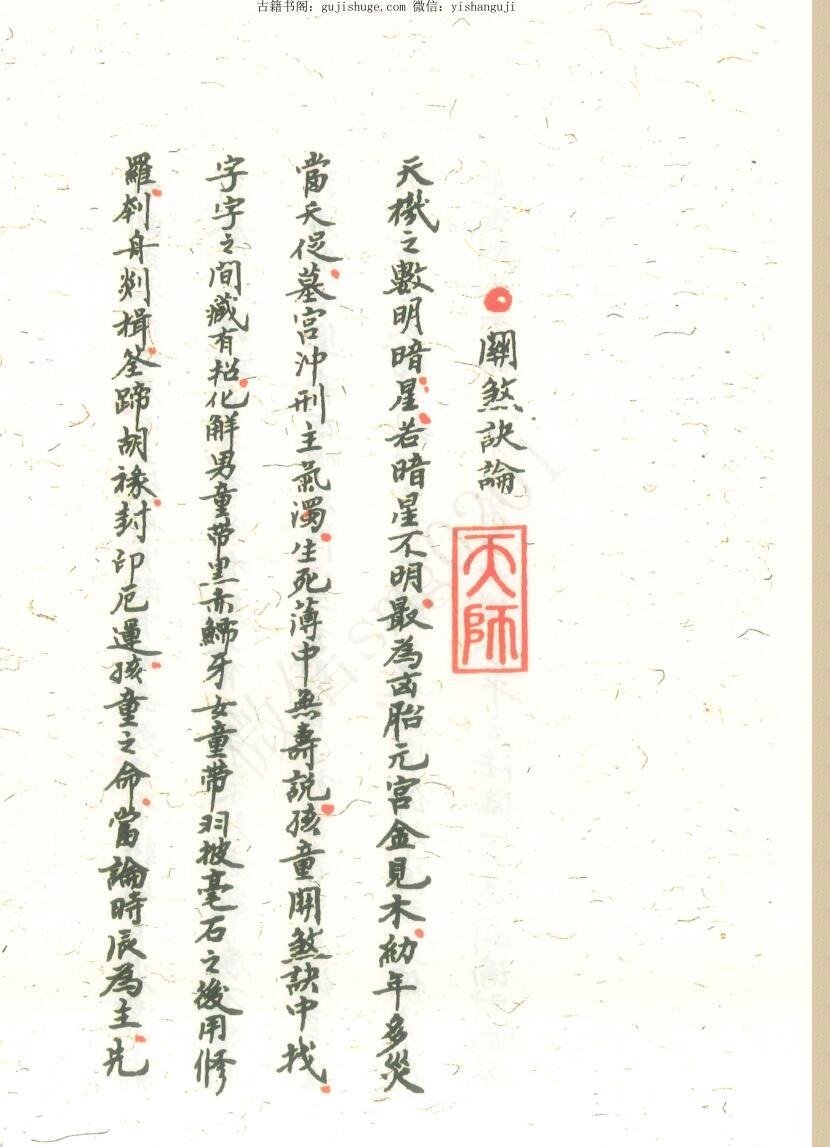 古籍书阁：gujishuge.com 微信：yishanguji
關煞訣論
天師
天機之數明暗星若暗星不明最為凶胎元宮金見木幼年多災
當夭促墓宮沖刑主氣濁生死薄中無壽説孩童關煞訣中找
字字之間藏有招化解男童帶黑赤鱬牙女童帶羽披毫石之後用修
羅刹舟剡楫荃蹄胡祿封印厄運孩童之命當論時辰為主先